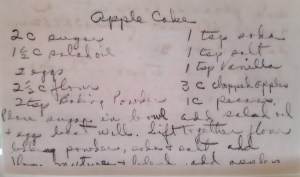 Apple Cake
2 C sugar 1 tsp soda
1 1/2 C salad oil 1 tsp salt
2 eggs 1 tsp vanilla
2 1/2 C flour 3 C chopped apples
2 tsp Baking Powder 1 C pecans
Place sugar in bowl add salad oil
+ eggs beat well. Sift together flour
baking powder, soda + salt and
mixture + blend. add